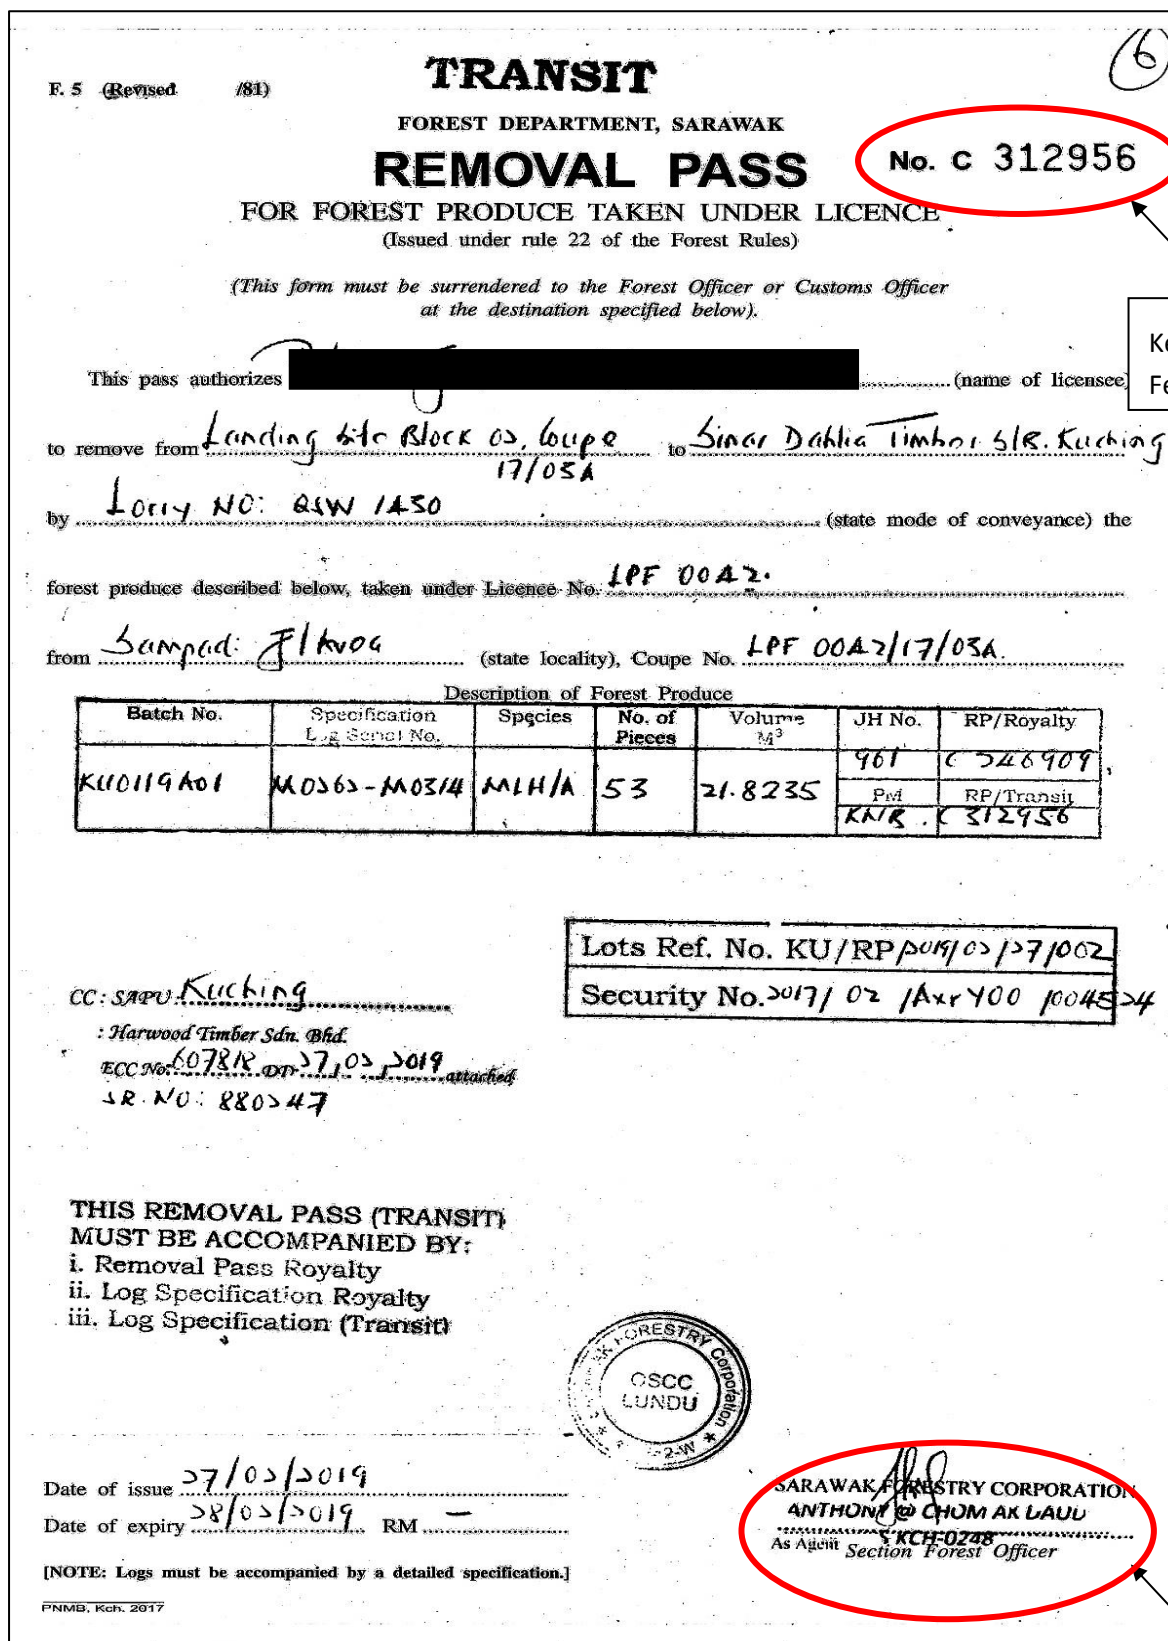 TRANSIT
F. 5 (Revised /81)
6
FOREST DEPARTMENT, SARAWAK
REMOVAL PASS
No. C 312956
FOR FOREST PRODUCE TAKEN UNDER LICENCE
(Issued under rule 22 of the Forest Rules)
(This form must be surrendered to the Forest Officer or Customs Officer
at the destination specified below).
This pass authorizes (name of licensee)
to remove from Landing site Block 02, Coupe 17/03A to Sinar Dahlia Timber S/B. Kuching
by Lorry NO: QSW 1430 (state mode of conveyance) the
forest produce described below, taken under Licence No. LPF 0042.
from Sampadi (state locality), Coupe No. LPF 0042/17/03A.
Description of Forest Produce
Batch No. Specification Log Serial No. Species No. of Pieces Volume M³ JH No. RP/Royalty
KU0119A01 M0262-M0314 MLH/A 53 21.8235 961 C 246909
PM RP/Transit
KNB. C 312956
Lots Ref. No. KU/RP/2019/02/27/002
Security No. 2017/02/ /004524
CC: SAPU: Kuching
: Harwood Timber Sdn. Bhd.
ECC No: 607818 DD 27/02/2019 attached
SR. NO: 880247
THIS REMOVAL PASS (TRANSIT)
MUST BE ACCOMPANIED BY:
i. Removal Pass Royalty
ii. Log Specification Royalty
iii. Log Specification (Transit)
FORESTRY Corporation
OSCC
LUNDU
Date of issue 27/02/2019
Date of expiry 28/02/2019 RM —
SARAWAK FORESTRY CORPORATION
ANTHONY @ CHOM AK DAUD
KCH-0248
As Agent Section Forest Officer
[NOTE: Logs must be accompanied by a detailed specification.]
PNMB, Kch. 2017